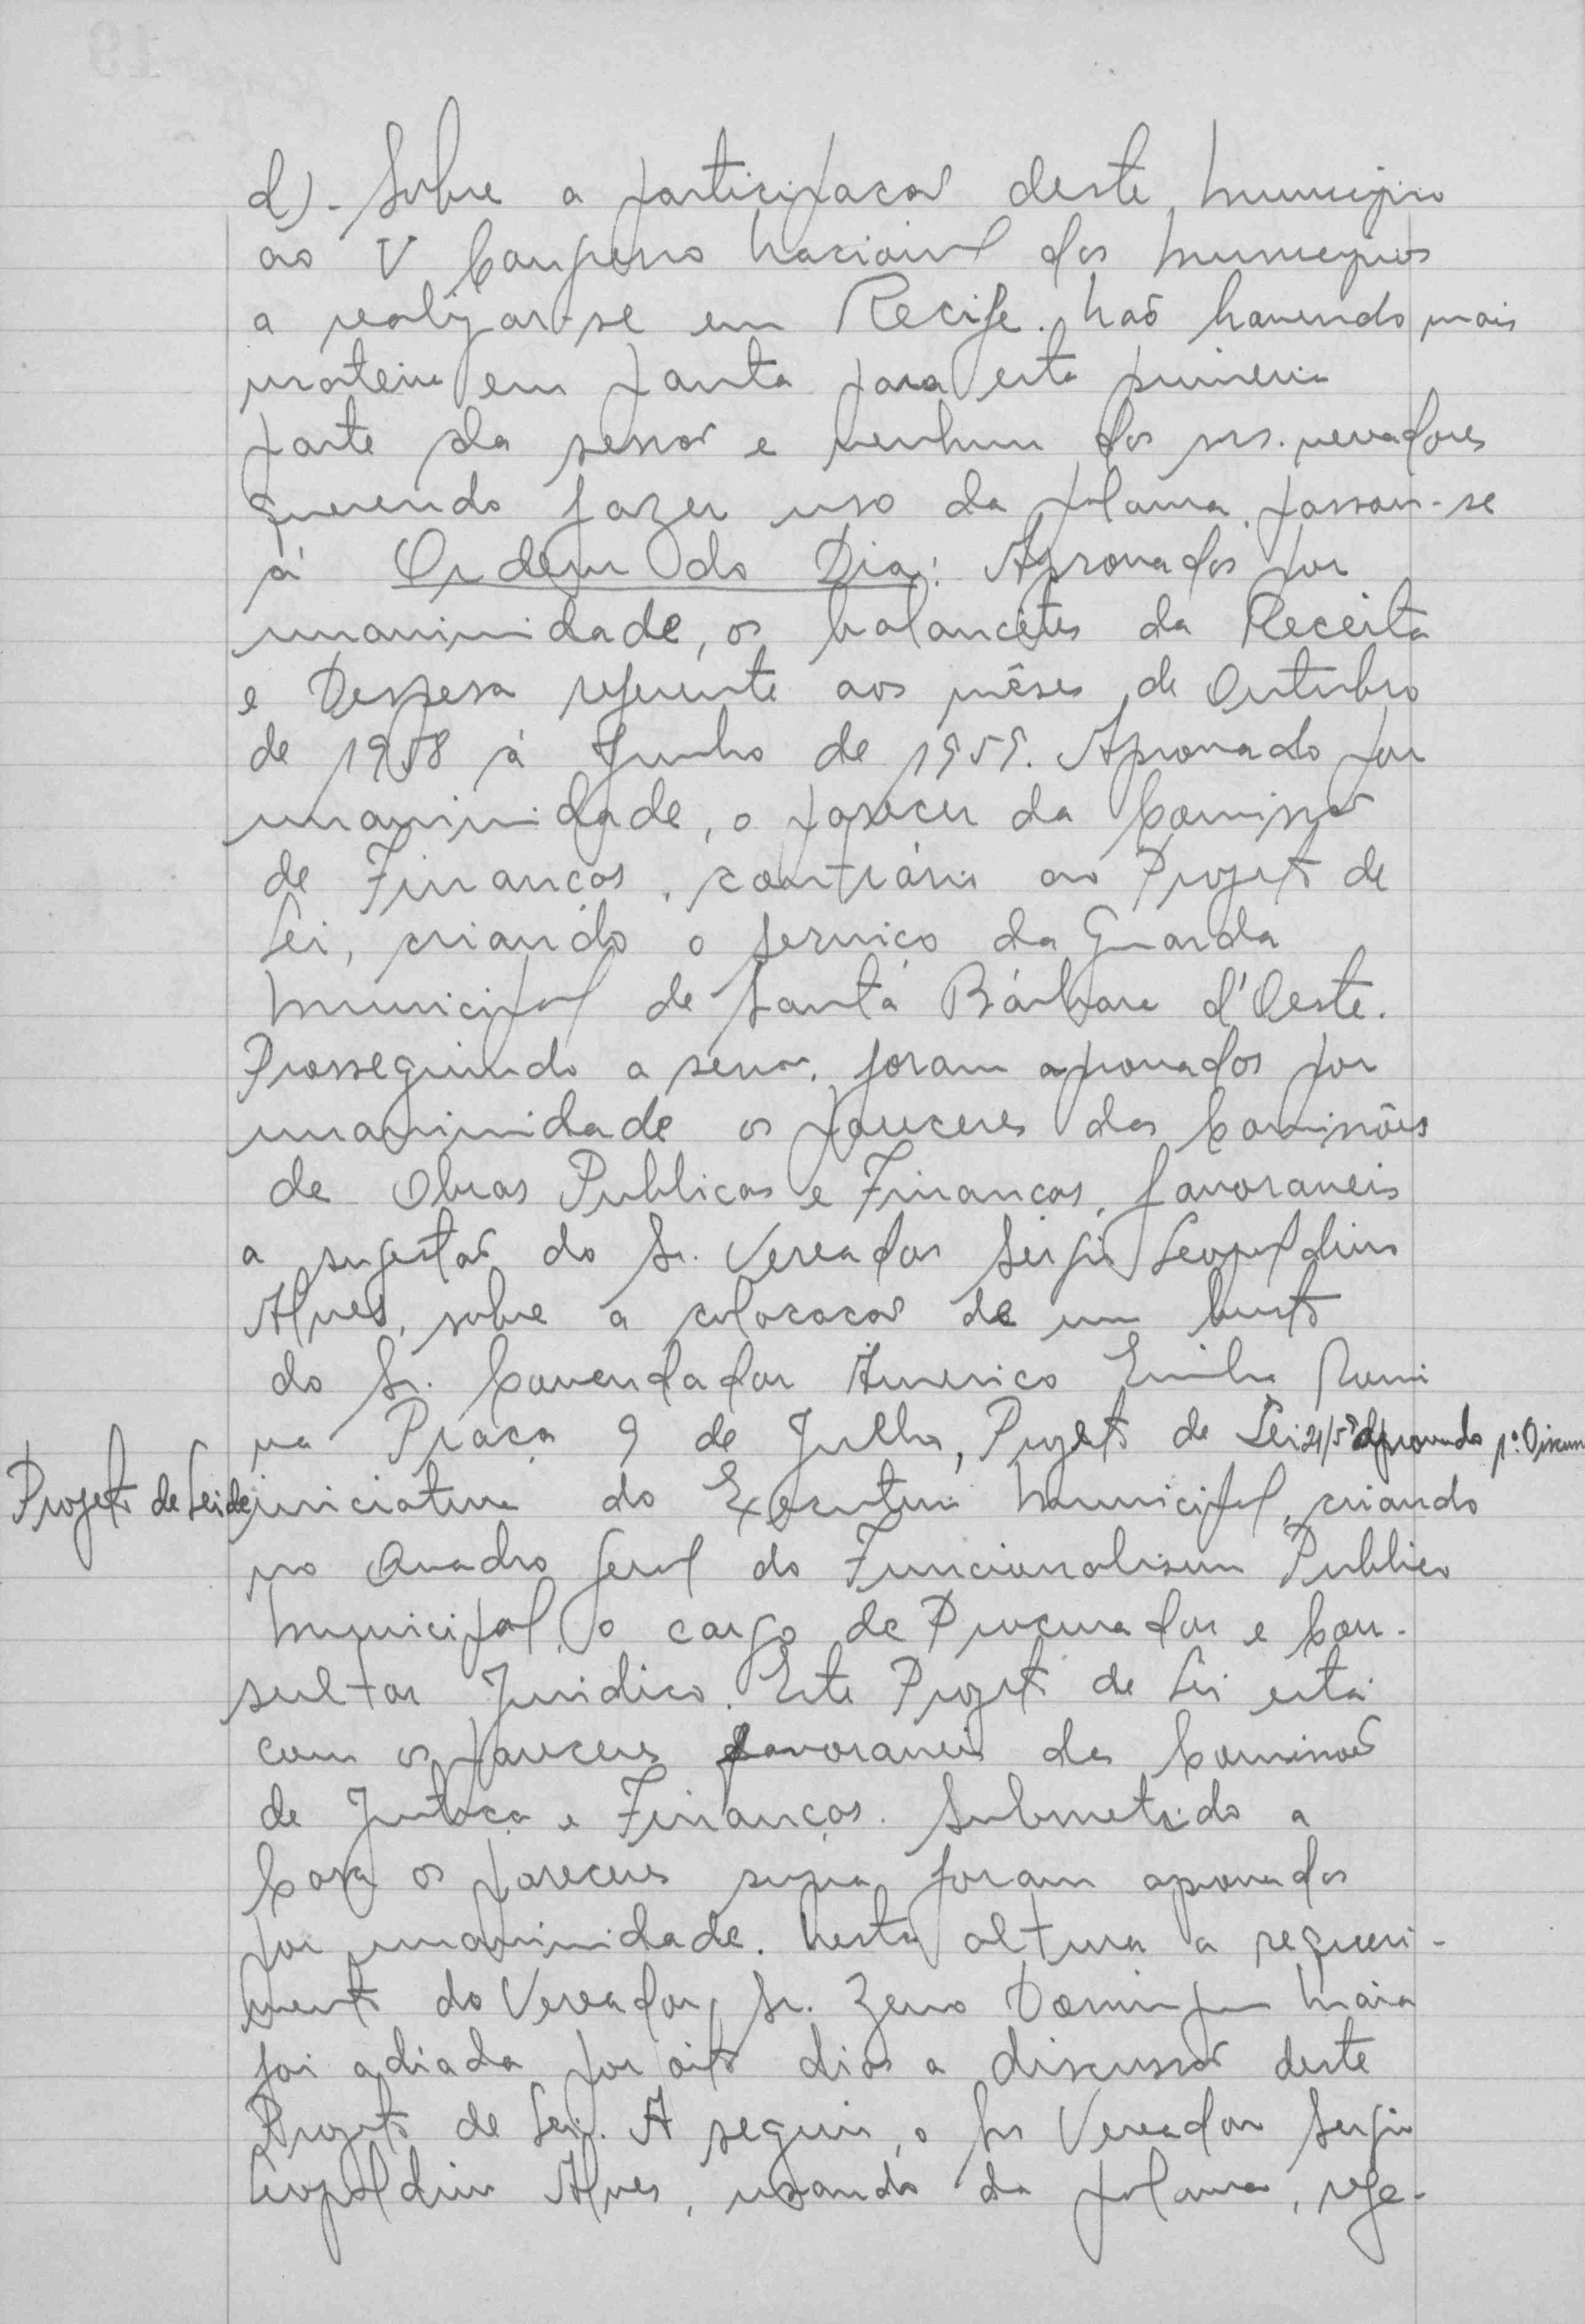 d)- Sobre a participacaõ deste Municipio
ao V Congresso Nacional dos Municipios
a realizar-se em Recife. Naõ havendo mais
materia em pauta para esta primeira
parte da sessaõ e nenhum dos srs. vereadores
querendo fazer uso da palavra, passou-se
á Ordem do Dia: Aprovados por
unanimidade, os balancêtes da Receita
e Despesa referente aos mêses de Outubro
de 1958 á Junho de 1959. Aprovado por
unanimidade, o parecer da Comissaõ
de Financas, contrário ao Projeto de
Lei, criando o serviço da Guarda
Municipal de Santa Bárbara d'Oeste.
Prosseguindo a sessaõ, foram aprovados por
unanimidade os pareceres das Comissões
de Obras Publicas e Financas, favoraveis
a sugestaõ do Sr. Vereador Sergio Leopoldino
Alves, sobre a colocacaõ de um busto
do Sr. Comendador Americo Emilio Romi
na Praça 9 de Julho, Projeto de Lei 21/59 Aprovado 1º. Discun
Projeto de Lei de iniciativa do Executivo Municipal, criando
no Quadro Geral do Funcionalismo Publico
Municipal, o cargo de Procurador e Con-
sultor Juridico. Este Projeto de Lei está
com os pareceres favoraveis da Comissaõ
de Justiça e Finanças. Submetido a
Casa os pareceres supra foram aprovados
por unanimidade. Nesta altura a requeri-
mento do Vereador, Sr. Zeno Domingues Maia
foi adiada por oito dias a discussaõ deste
Projeto de Lei. A seguir, o Sr Vereador Sergio
Leopoldino Alves, usando da palavra, refe-